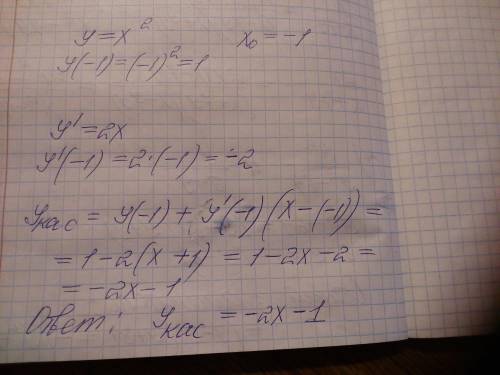 y=x² x₀=-1
y(-1)=(-1)²=1
y'=2x
y'(-1)=2·(-1)=-2
yкас = y(-1)+y'(-1)(x-(-1))=
=1-2(x+1)=1-2x-2=
=-2x-1
Ответ: yкас=-2x-1